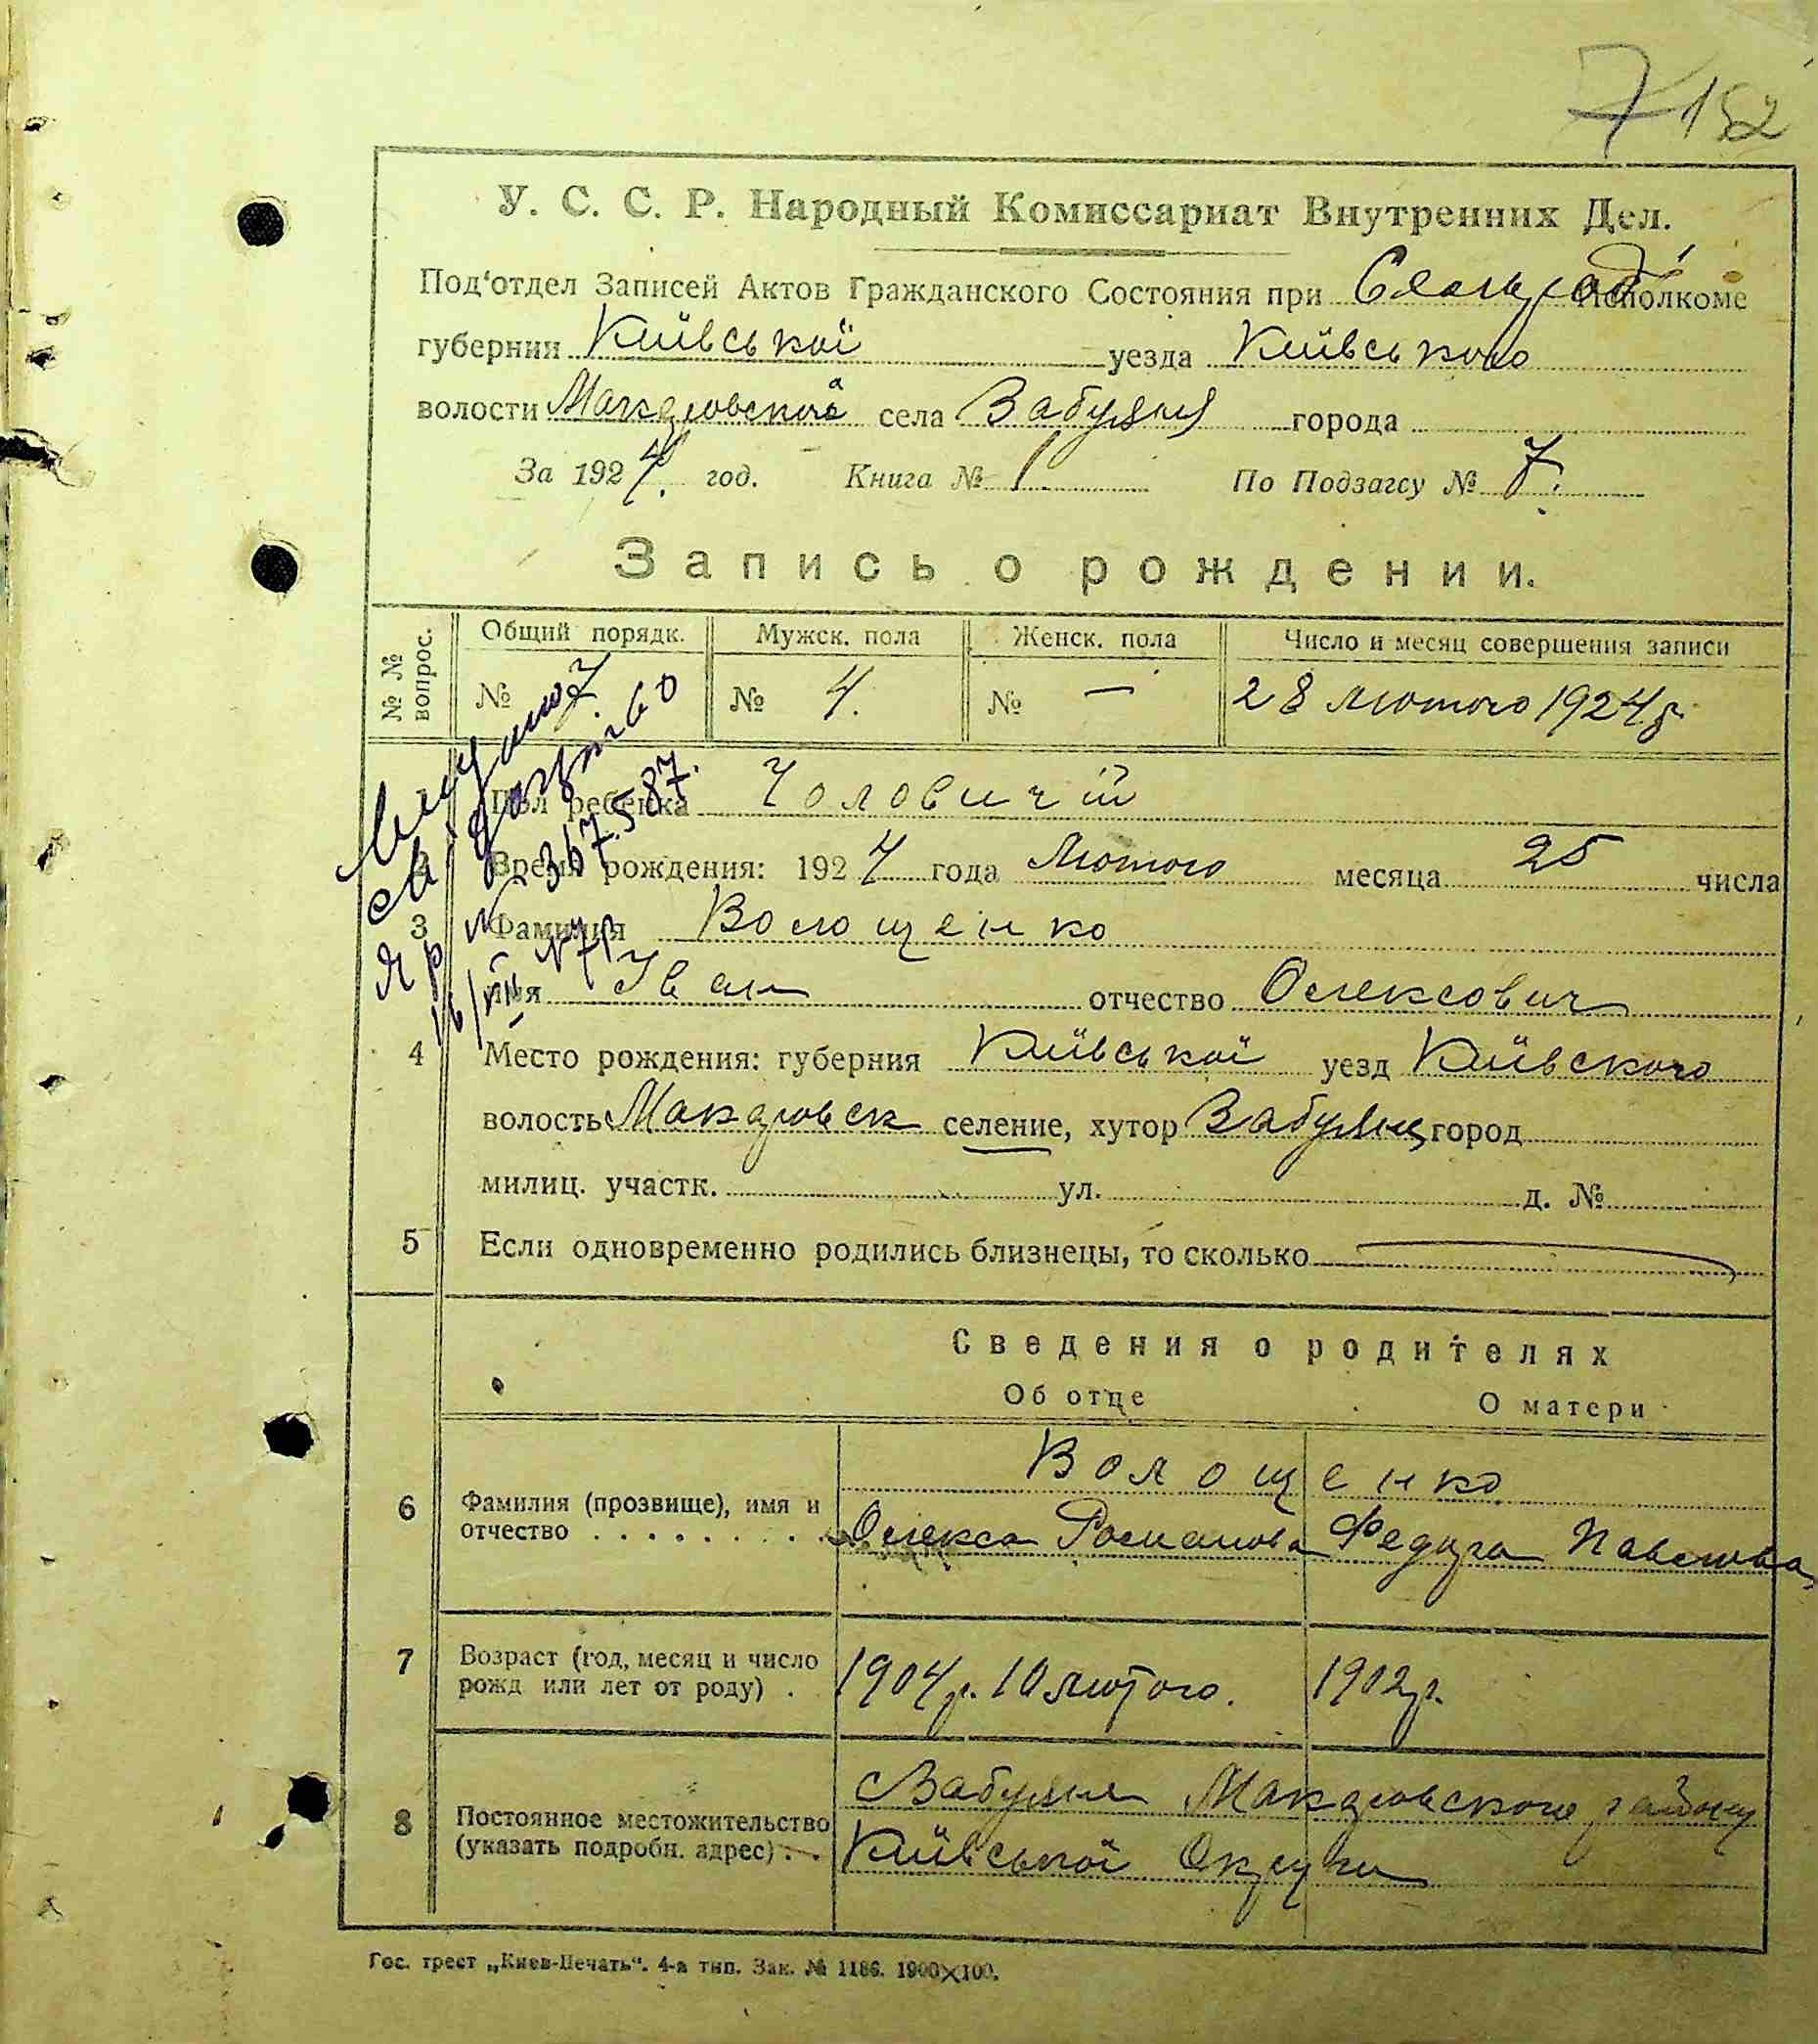 7 152
У. С. С. Р. Народный Комиссариат Внутренних Дел.
Под'отдел Записей Актов Гражданского Состояния при Сельрад Исполкоме
губернии Київської уезда Київського
волости Макаровской села Забуяня города
За 1924 год. Книга № 1. По Подзагсу № 7.
Запись о рождении.
№ № вопрос. Общий порядк. Мужск. пола Женск. пола Число и месяц совершения записи
№ 7 № 4. № — 28 лютого 1924 р.
Пол ребенка Чоловичій
2 Время рождения: 1924 года Лютого месяца 25 числа
3 Фамилия Волощенко
Имя Іван отчество Олексович
4 Место рождения: губерния Київської уезд Київского
волость Макаровск селение, хутор Забуянь город
милиц. участк. ул. д. №
5 Если одновременно родились близнецы, то сколько
Сведения о родителях
Об отце О матери
Волощенко
6 Фамилия (прозвище), имя и
отчество Олекса Романова Федора Павлова
7 Возраст (год, месяц и число
рожд или лет от роду) . 1904 р. 10 лютого. 1902 р.
с Забуяня Макаровского району
8 Постоянное местожительство
(указать подробн. адрес) . . Київської Округи
№ 367587.
Гос. трест „Киев-Печать“. 4-я тип. Зак. № 1186. 1900×100.